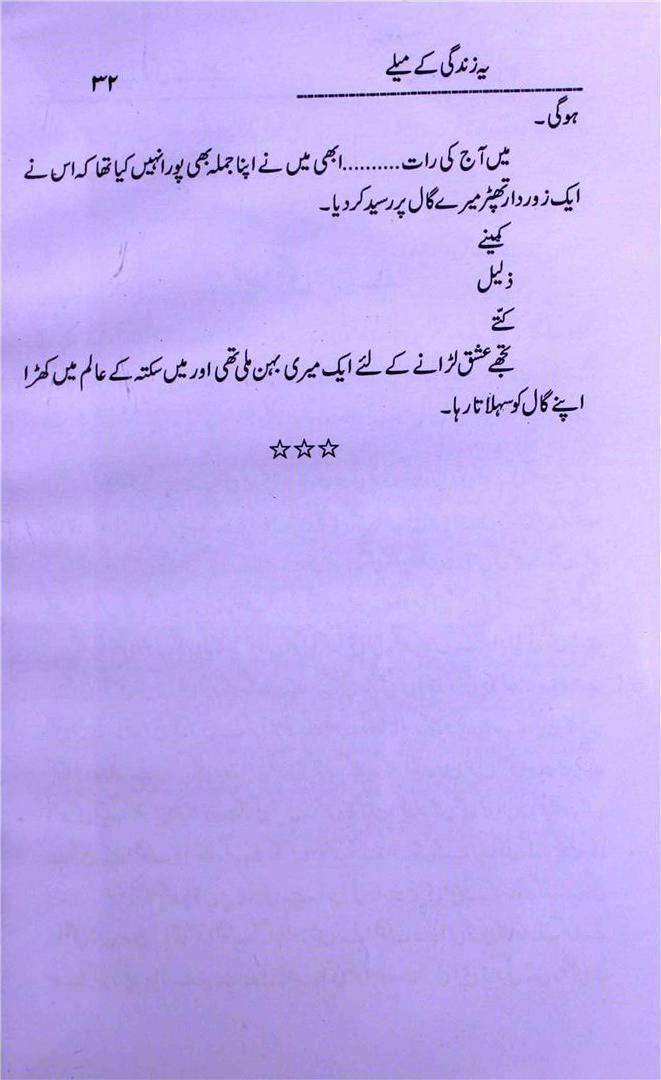 یہ زندگی کے میلے
۳۲
ہوگی۔
میں آج کی رات..........ابھی میں نے اپنا جملہ بھی پورا نہیں کیا تھا کہ اس نے
ایک زوردار تھپڑ میرے گال پر رسید کر دیا۔
کمینے
ذلیل
کتّے
تجھے عشق لڑانے کے لئے ایک میری بہن ملی تھی اور میں سکتہ کے عالم میں کھڑا
اپنے گال کو سہلاتا رہا۔
☆☆☆